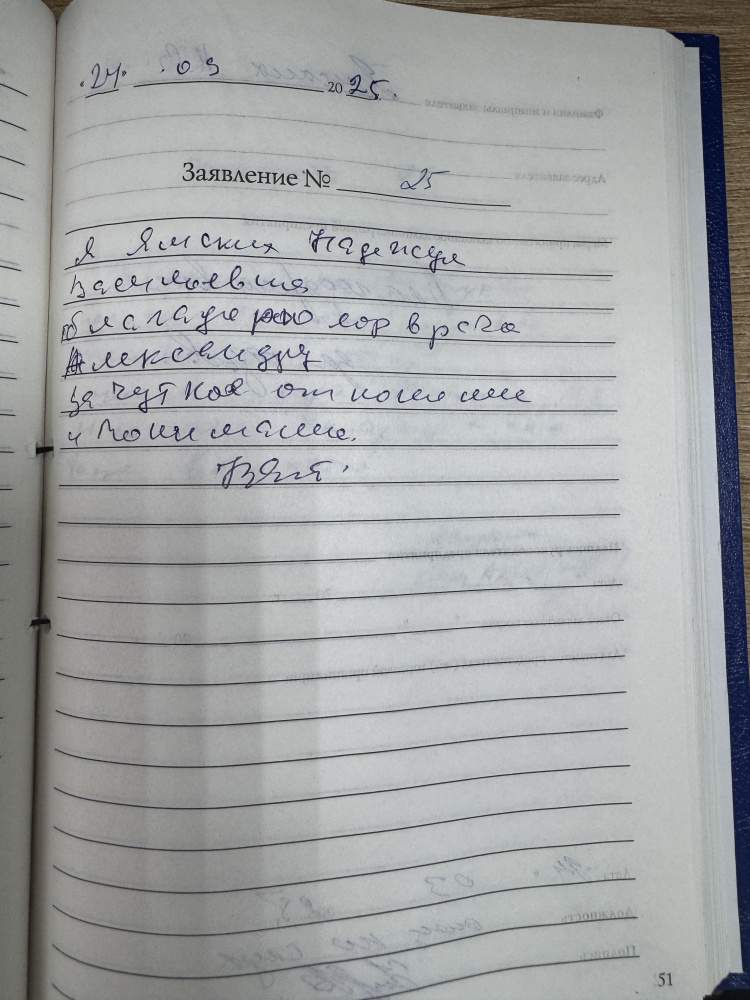 .24. .03 2025.
Заявление № 25
Я Ямских Надежда
Васильевна
благадарю лор врача
Александру
за чуткое отношение
и понимание.
51